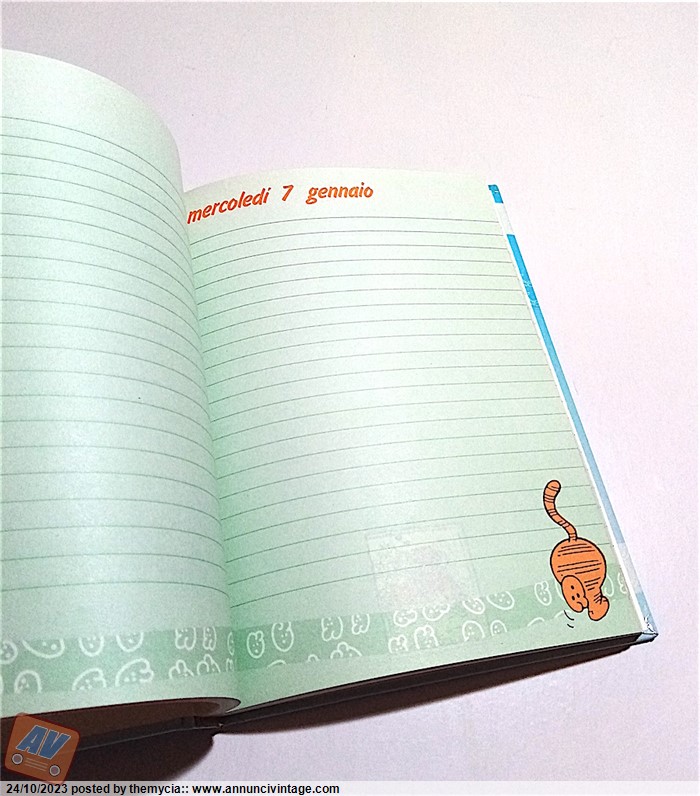 mercoledi 7 gennaio
AV
24/10/2023 posted by themycia:: www.annuncivintage.com